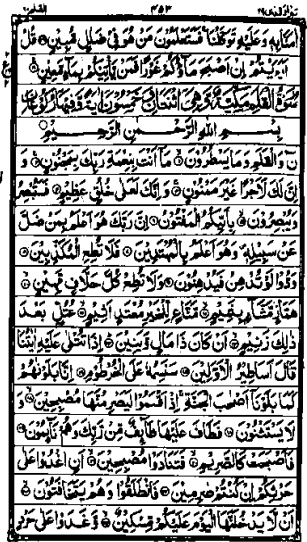 اٰمَنَّا بِهٖ وَعَلَيْهِ تَوَكَّلْنَا فَسَتَعْلَمُوْنَ مَنْ هُوَ فِيْ ضَلٰلٍ مُّبِيْنٍ قُلْ
اَرَءَيْتُمْ اِنْ اَصْبَحَ مَآؤُكُمْ غَوْرًا فَمَنْ يَّاْتِيْكُمْ بِمَآءٍ مَّعِيْنٍ
بِسْمِ اللّٰهِ الرَّحْمٰنِ الرَّحِيْمِ
نٓ وَالْقَلَمِ وَمَا يَسْطُرُوْنَ مَآ اَنْتَ بِنِعْمَةِ رَبِّكَ بِمَجْنُوْنٍ وَ
اِنَّ لَكَ لَاَجْرًا غَيْرَ مَمْنُوْنٍ وَاِنَّكَ لَعَلٰى خُلُقٍ عَظِيْمٍ فَسَتُبْصِرُ
وَيُبْصِرُوْنَ بِاَيِّكُمُ الْمَفْتُوْنُ اِنَّ رَبَّكَ هُوَ اَعْلَمُ بِمَنْ ضَلَّ
عَنْ سَبِيْلِهٖ وَهُوَ اَعْلَمُ بِالْمُهْتَدِيْنَ فَلَا تُطِعِ الْمُكَذِّبِيْنَ
وَدُّوْا لَوْ تُدْهِنُ فَيُدْهِنُوْنَ وَلَا تُطِعْ كُلَّ حَلَّافٍ مَّهِيْنٍ
هَمَّازٍ مَّشَّآءٍۭ بِنَمِيْمٍ مَّنَّاعٍ لِّلْخَيْرِ مُعْتَدٍ اَثِيْمٍ عُتُلٍّۭ بَعْدَ
ذٰلِكَ زَنِيْمٍ اَنْ كَانَ ذَا مَالٍ وَّبَنِيْنَ اِذَا تُتْلٰى عَلَيْهِ اٰيٰتُنَا
قَالَ اَسَاطِيْرُ الْاَوَّلِيْنَ سَنَسِمُهٗ عَلَى الْخُرْطُوْمِ اِنَّا بَلَوْنٰهُمْ
كَمَا بَلَوْنَآ اَصْحٰبَ الْجَنَّةِ اِذْ اَقْسَمُوْا لَيَصْرِمُنَّهَا مُصْبِحِيْنَ وَ
لَا يَسْتَثْنُوْنَ فَطَافَ عَلَيْهَا طَآئِفٌ مِّنْ رَّبِّكَ وَهُمْ نَآئِمُوْنَ
فَاَصْبَحَتْ كَالصَّرِيْمِ فَتَنَادَوْا مُصْبِحِيْنَ اَنِ اغْدُوْا عَلٰى
حَرْثِكُمْ اِنْ كُنْتُمْ صٰرِمِيْنَ فَانْطَلَقُوْا وَهُمْ يَتَخَافَتُوْنَ
اَنْ لَّا يَدْخُلَنَّهَا الْيَوْمَ عَلَيْكُمْ مِّسْكِيْنٌ وَّغَدَوْا عَلٰى حَرْدٍ